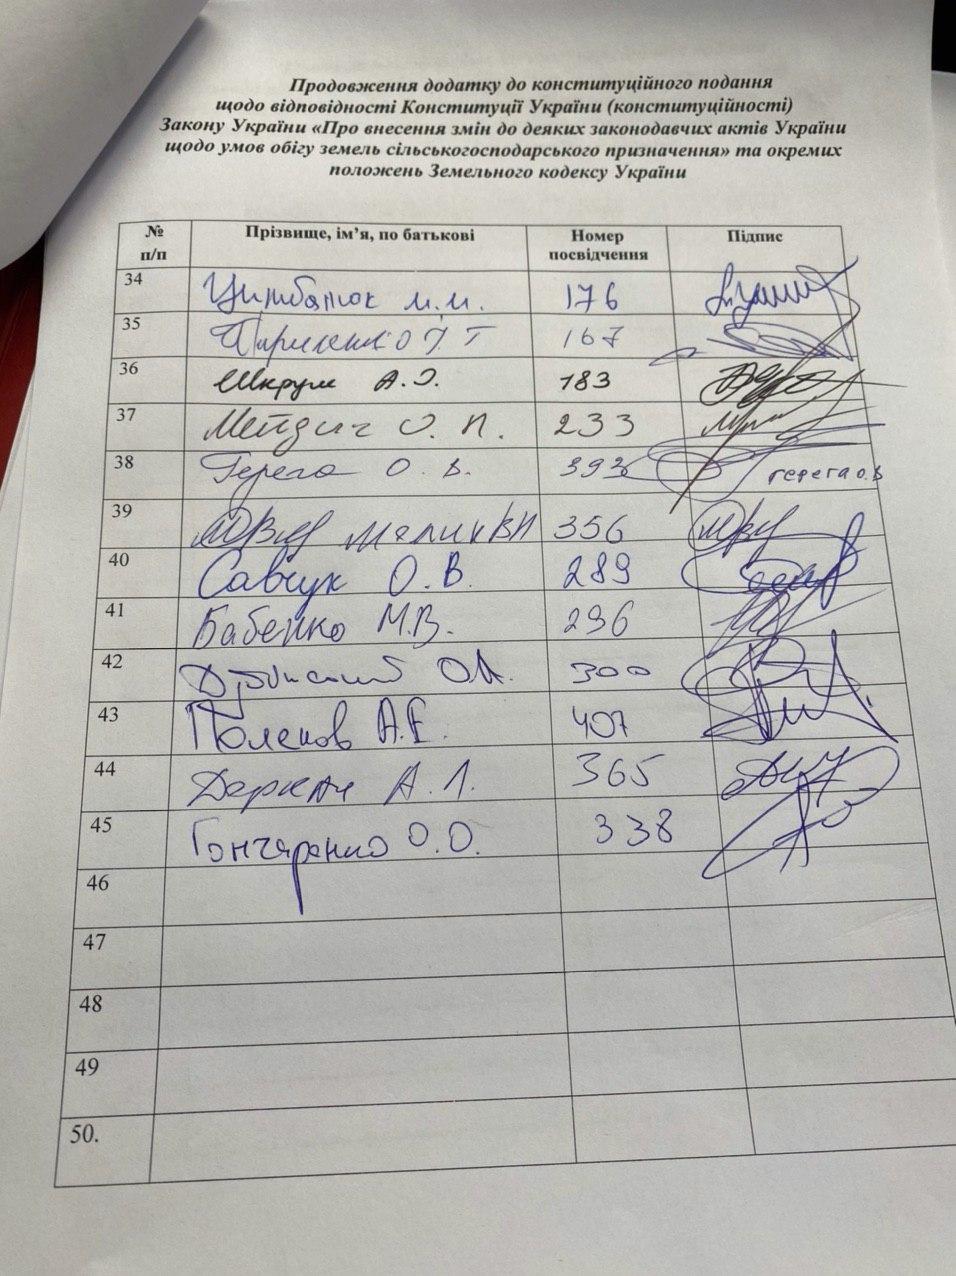 Продовження додатку до конституційного подання
щодо відповідності Конституції України (конституційності)
Закону України «Про внесення змін до деяких законодавчих актів України
щодо умов обігу земель сільськогосподарського призначення» та окремих
положень Земельного кодексу України
№ п/п Прізвище, ім’я, по батькові Номер посвідчення Підпис
34 Цимбалюк М.М. 176
35 167
36 Шкрум А.І. 183
37 Мейдич О. Л. 233
38 Герега О. В. 393 герега о.в
39 356
40 Савчук О. В. 289
41 Бабенко М.В. 296
42 300
43 Поляков А.Е. 407
44 Деркач А. Л. 365
45 Гончаренко О.О. 338
46
47
48
49
50.